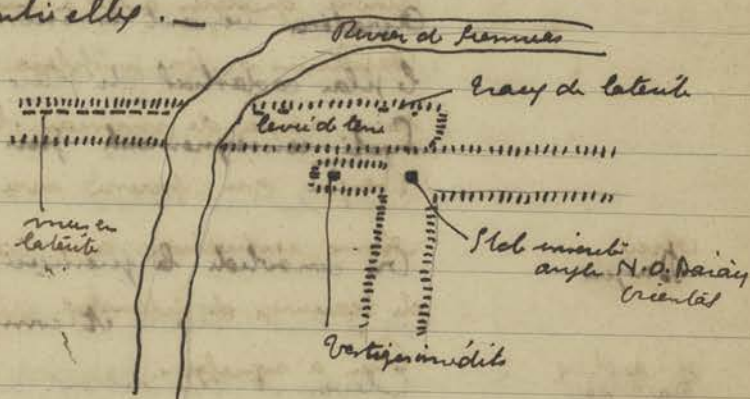 Rivière de Siemreap
traces de latérite
levée de terre
mur en
latérite
Stèle inscrite
angle N.O. Baray
oriental
Vestiges inédits